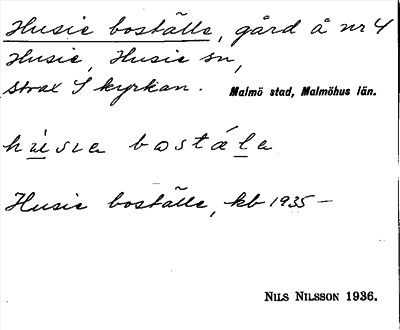 Husie boställe, gård å nr 4
Husie, Husie sn,
strax S kyrkan. Malmö stad, Malmöhus län.
husıe bostále
Husie boställe, kb 1935–
NILS NILSSON 1936.